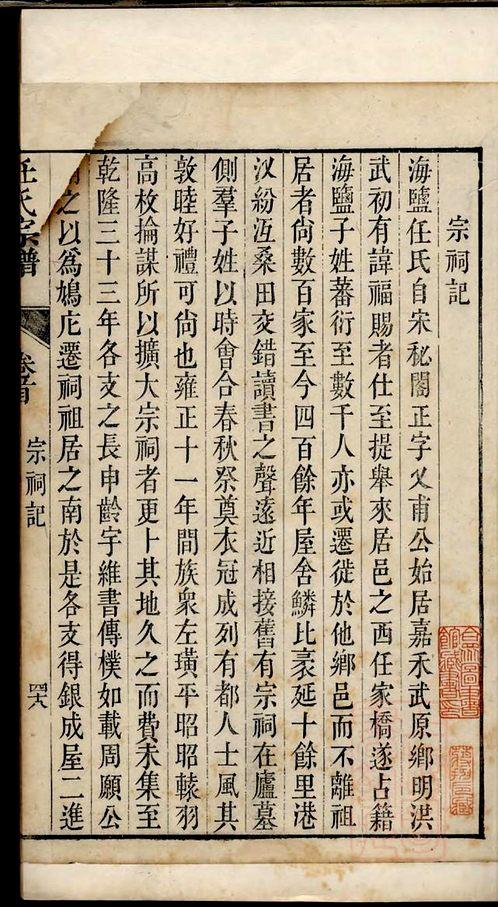 宗祠記
海鹽任氏自宋秘閣正字乂甫公始居嘉禾武原鄉明洪
武初有諱福賜者仕至提舉來居邑之西任家橋遂占籍
海鹽子姓蕃衍至數千人亦或遷徙於他鄉邑而不離祖
居者尙數百家至今四百餘年屋舍鱗比袤延十餘里港
汊紛沍桑田交錯讀書之聲遠近相接舊有宗祠在廬墓
側羣子姓以時會合春秋祭奠衣冠成列有都人士風其
敦睦好禮可尙也雍正十一年間族衆左璜平昭昭轅羽
高枚掄謀所以擴大宗祠者更卜其地久之而費未集至
乾隆三十三年各支之長申齡字維書傳樸如載周願公
之以爲鳩庀遷祠祖居之南於是各支得銀成屋二進
任氏宗譜
卷首
宗祠記